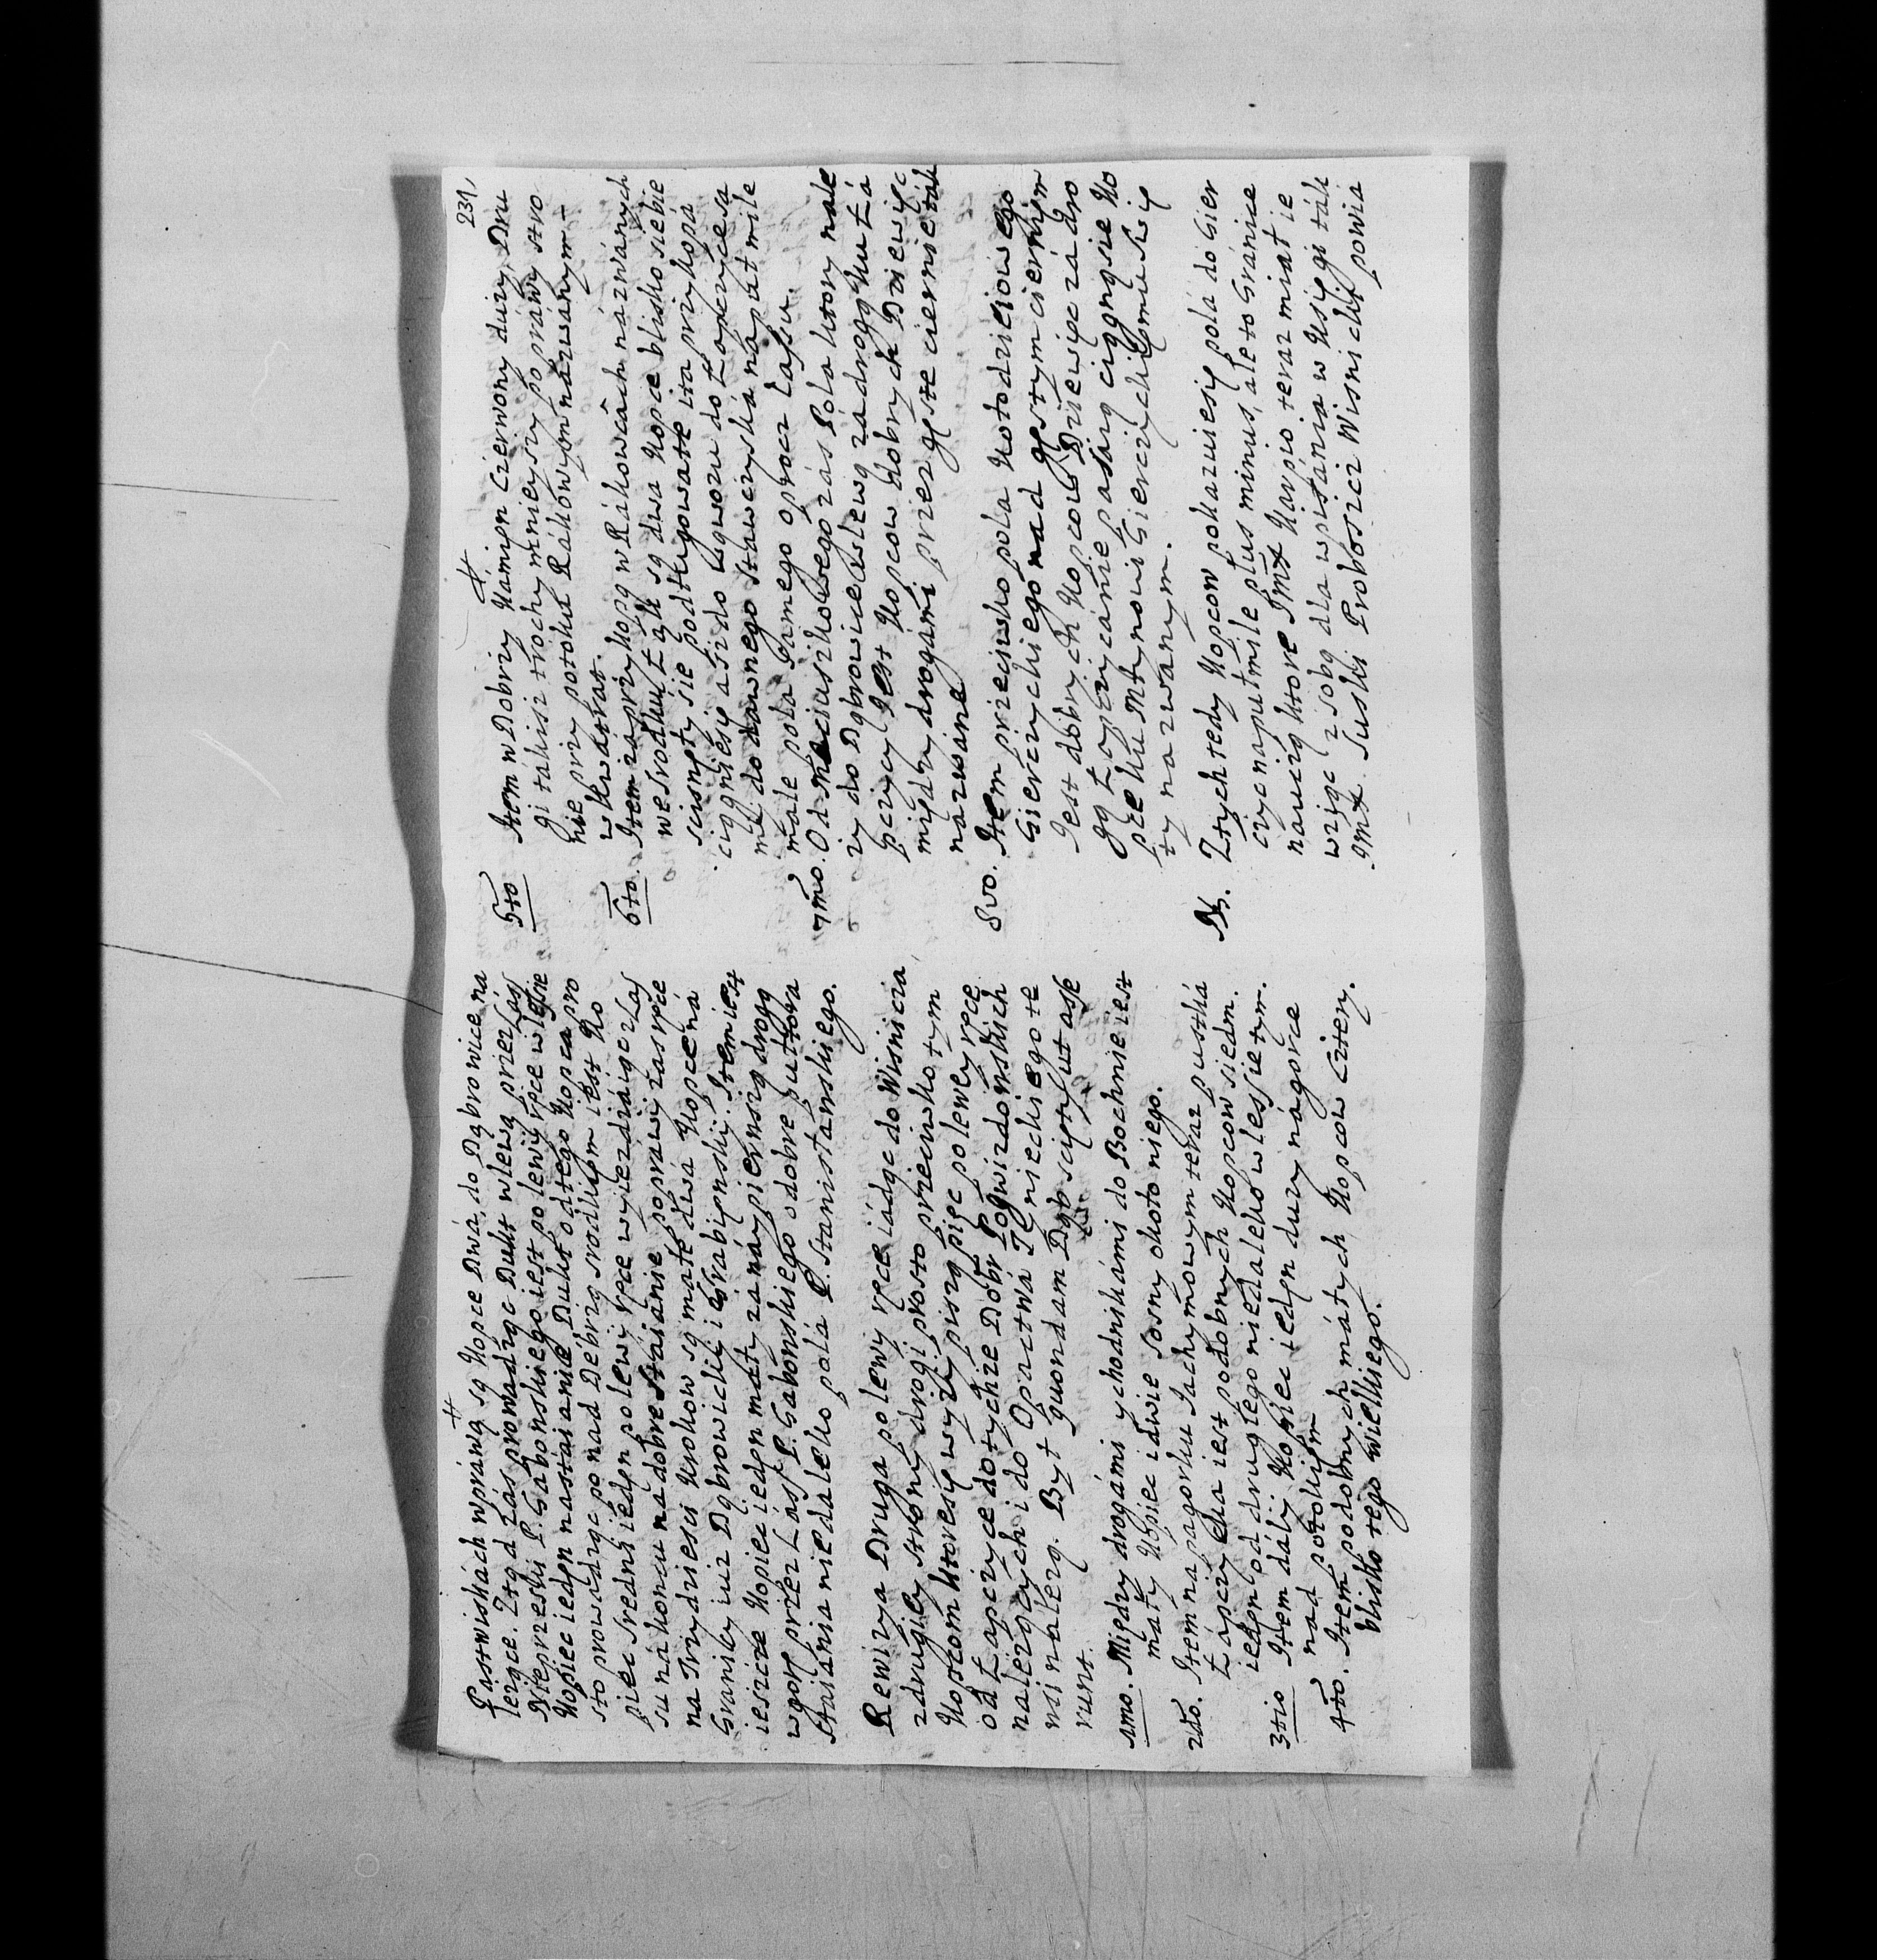 Pastwiskách wpráwą są Kopce Dwá, do Dąbrowice na
leżące. Ztąd zás prowadząc Dukt wlewą przez Lás
Nieprzeski P. Gabonskiego iest po lewy ręce w lesie
Kopiec ieden nastaianie, Dukt od tego Kopca pro
sto prowadząc ponad Debrzą srodkiem iest Ko
piec sredni ieden po lewy ręce wyiezdzáiąc z Las
su ná koncu na dobre Staianie, po prawy zas ręce
na Trzydziesci Krokow są małe dwá Kopce ná
Granicy iuz Dąbrowickiy i Grabięnskiy. Item iest
ieszcze Kopiec ieden mały zá náypierwszą drogą
wgorę przez Lás P. Gabonskiego o dobre puttora
Staiania niedaleko polá P. Stanistanskiego.
Rewizya Druga po lewy ręce iádąc do Wisnicza,
zdrugiey strony drogi prosto przeciwko tym
Kopcom ktore się wyzy piszą pięc po lewey ręce
od Łapczyce do tychze Dobr Pogwizdowskich
nalezących i do Opactwá Tynieckiego te
wsi nalezą. Był quondam Dąb scissus ut asse
runt.
1mo. Między drogámi y chodnikámi do Bochnie iest
mały Kopiec i dwie Sosny około niego.
2do. Item na pagorku Jachymowym teraz pustká
Łapczycka iest podobnych Kopcow siedm.
ieden od drugiego niedaleko w lesie tym.
3tio Item dálij Kopiec ieden duzy nágorce
nad potokiem
4to. Item podobnych máłych Kopcow cztery.
blisko tego wielkiego.
231,
5to Item w Dobrzy Kámien Czerwony duży, Dru
gi takisz trochy mnieyszy po práwy stro
nie przy potoku Rákowym názwánym –
w kwadrat.
6to. Item za przykopą w Rákowcách názwánych
we srodku Łąk są dwa Kopce blisko siebie
scisnęty sie podługowate ita przykopá
ciągnie się asz do wąwozu do Łapczyce sa
my do dawnego Stawczyská na puł mile
małe pola samego oprocz Lassu.
7mo. Od Maciuszkowego zás Pola ktory nale
zy do Dąbrowice w lewą zá drogą ku Łá
pczycy Iest Kopcow dobrych Dziewięc
między drogámi przez gęste ciernie ták
názwáne
8vo. Item przeciwko pola Kotodzieiowego
Gierczyckiego nad gęstym ciernym
Iest dobrych Kopcow Dziewięc zá dro
gą Łapczycámie pasárą ciągną sie Ko
pce ku Młynowi Gierczyckiemu Swię
ty nazwanym.
NB. Ztych tedy Kopcow pokazuie się polá do Gier
czyc na puł mile plus minus, ále to Gránice
náuczą ktore Jmx Karpio. teraz miat ie
wziąc z sobą dla wpisánia w Księgi ták
Jmx. Suski Proboszcz Wisnicki powia